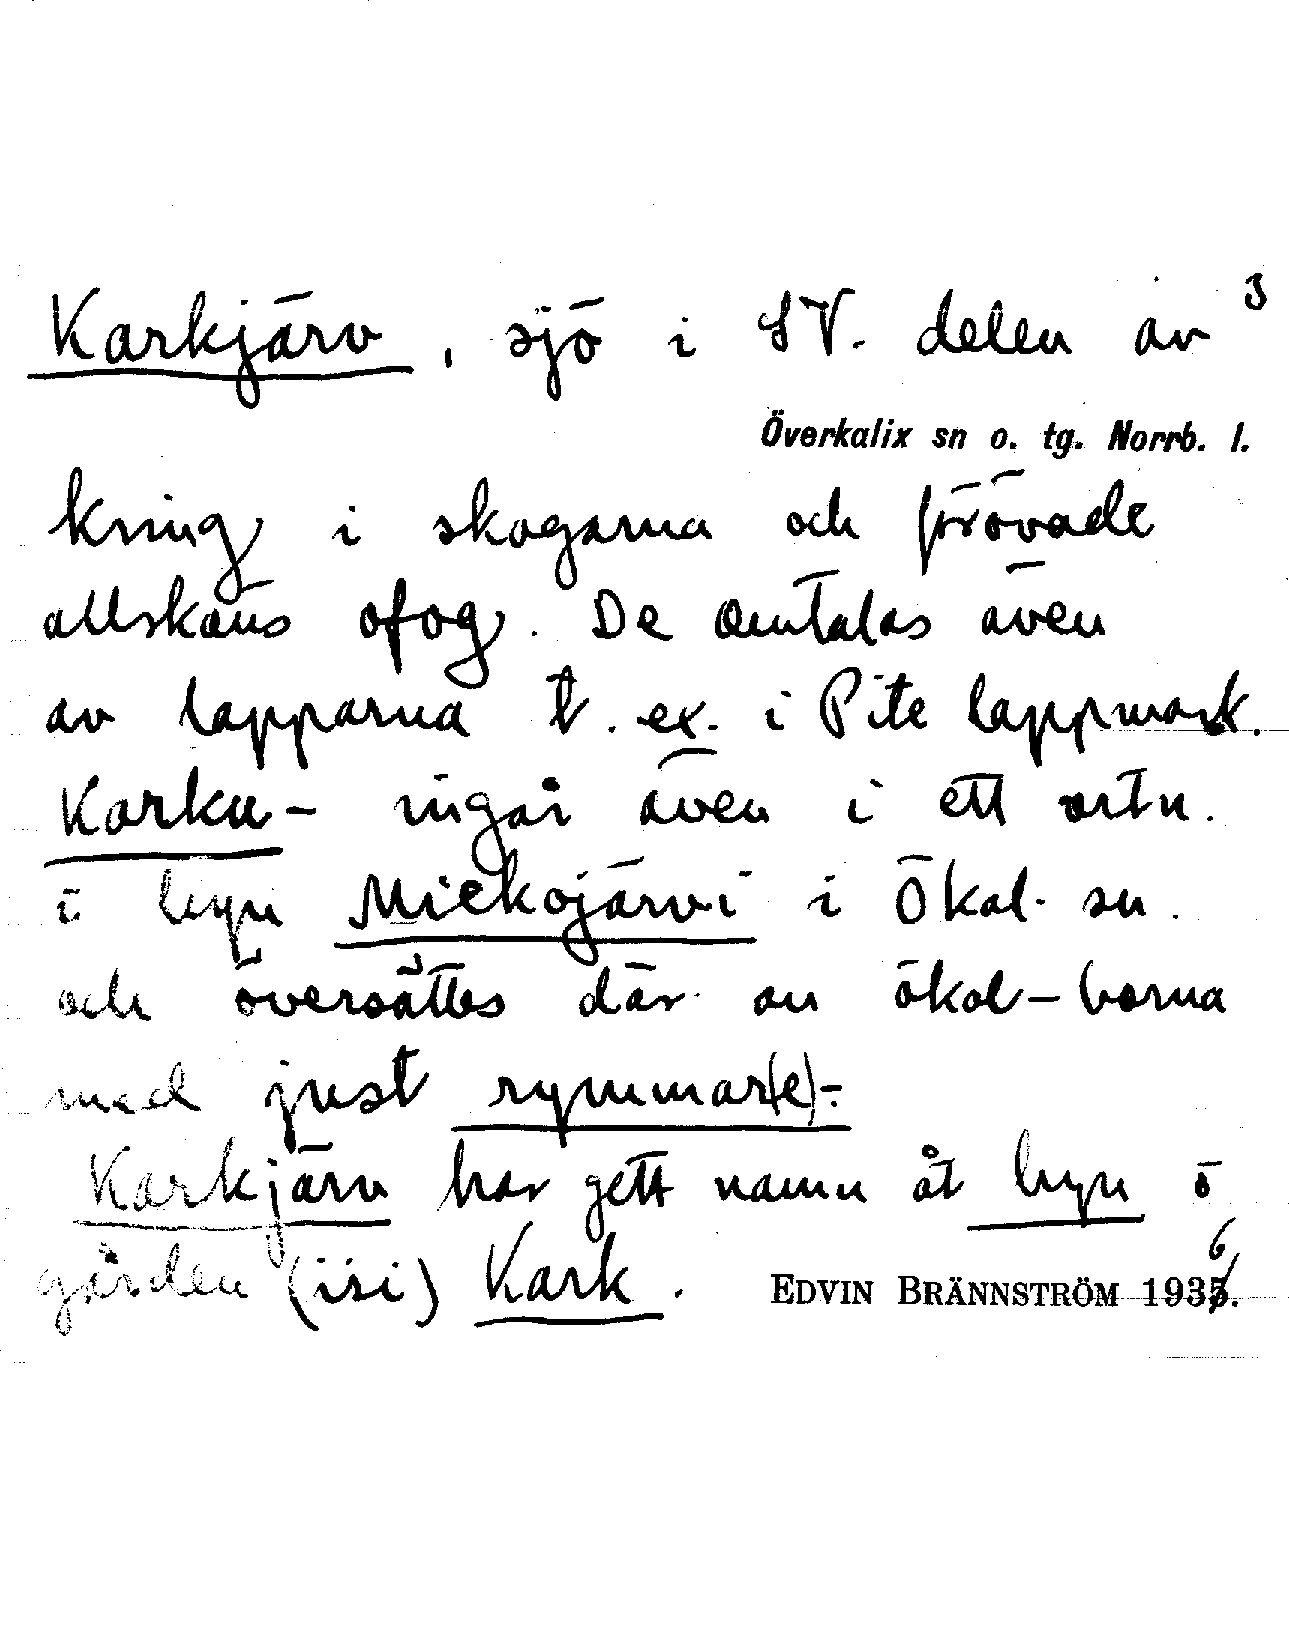 3
Karkjärv, sjö i SV. delen av
Överkalix sn o. tg. Norrb. l.
kring i skogarna och prövade
allskäns ofog. De omtalas även
av lapparna t. ex. i Pite lappmark.
Karku- ingår även i ett ortn.
i byn Mickojärvi i Ökal. sn.
och översättes där av ökal-borna
med just rymmar(e)-.
Karkjärv har gett namn åt byn o
gården (isi) Kark.
EDVIN BRÄNNSTRÖM 1936.